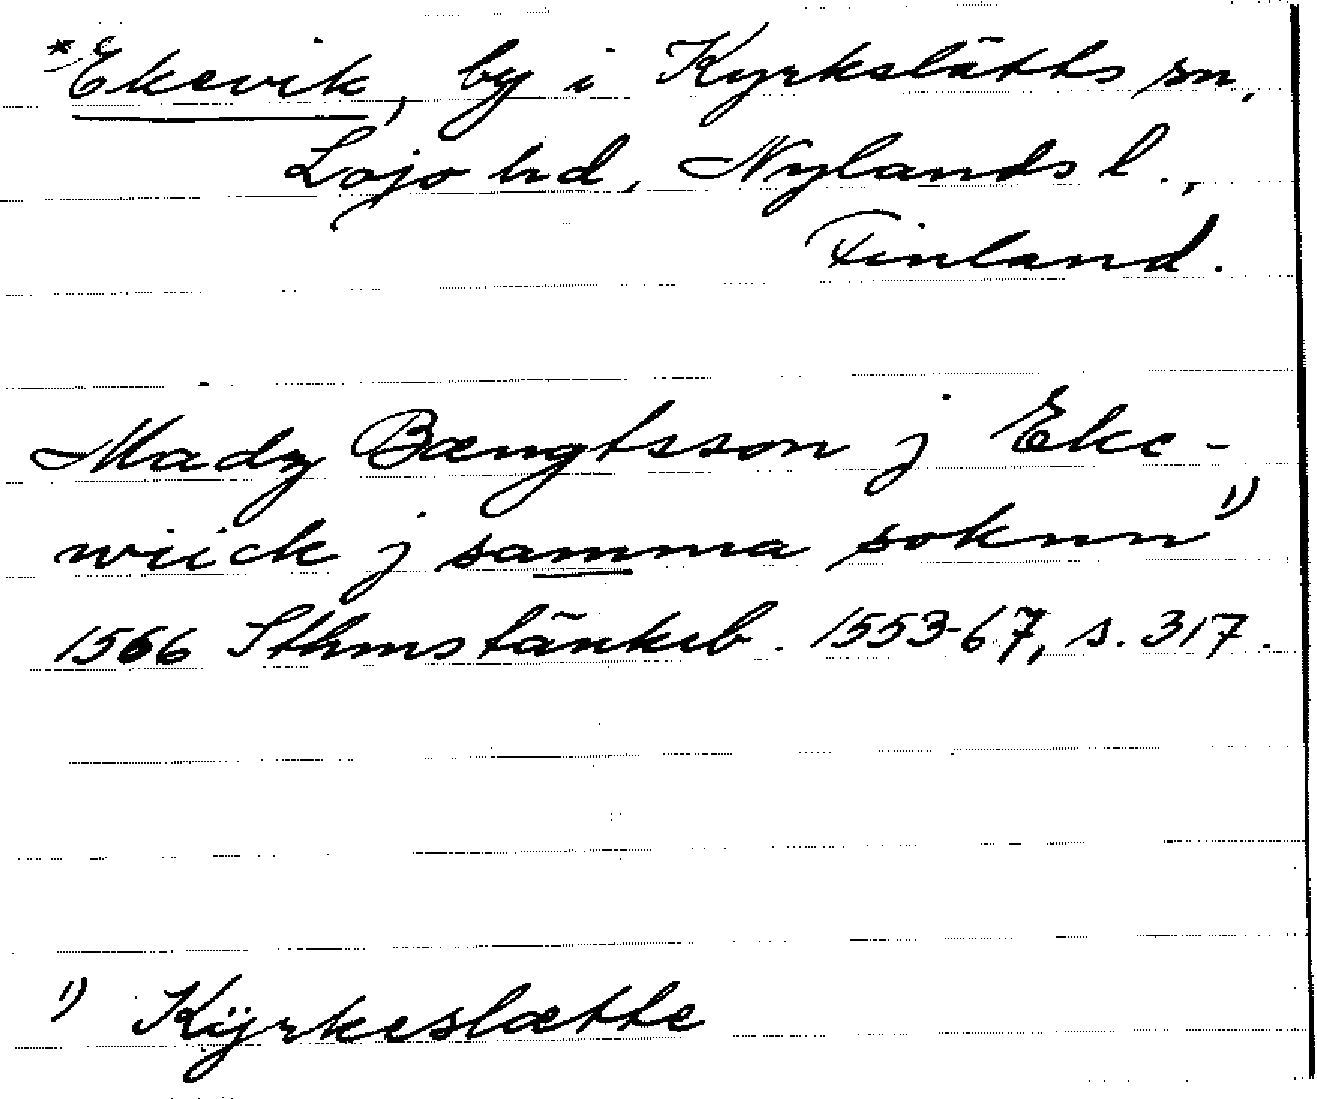 *Ekevik, by i Kyrkslätts sn,
Lojo hd, Nylands l.,
Finland.
Madz Bængtsson j Eke-
wiick j samma soknn 1)
1566 Sthms tänkeb. 1553-67, s. 317.
1) Kÿrkeslætte